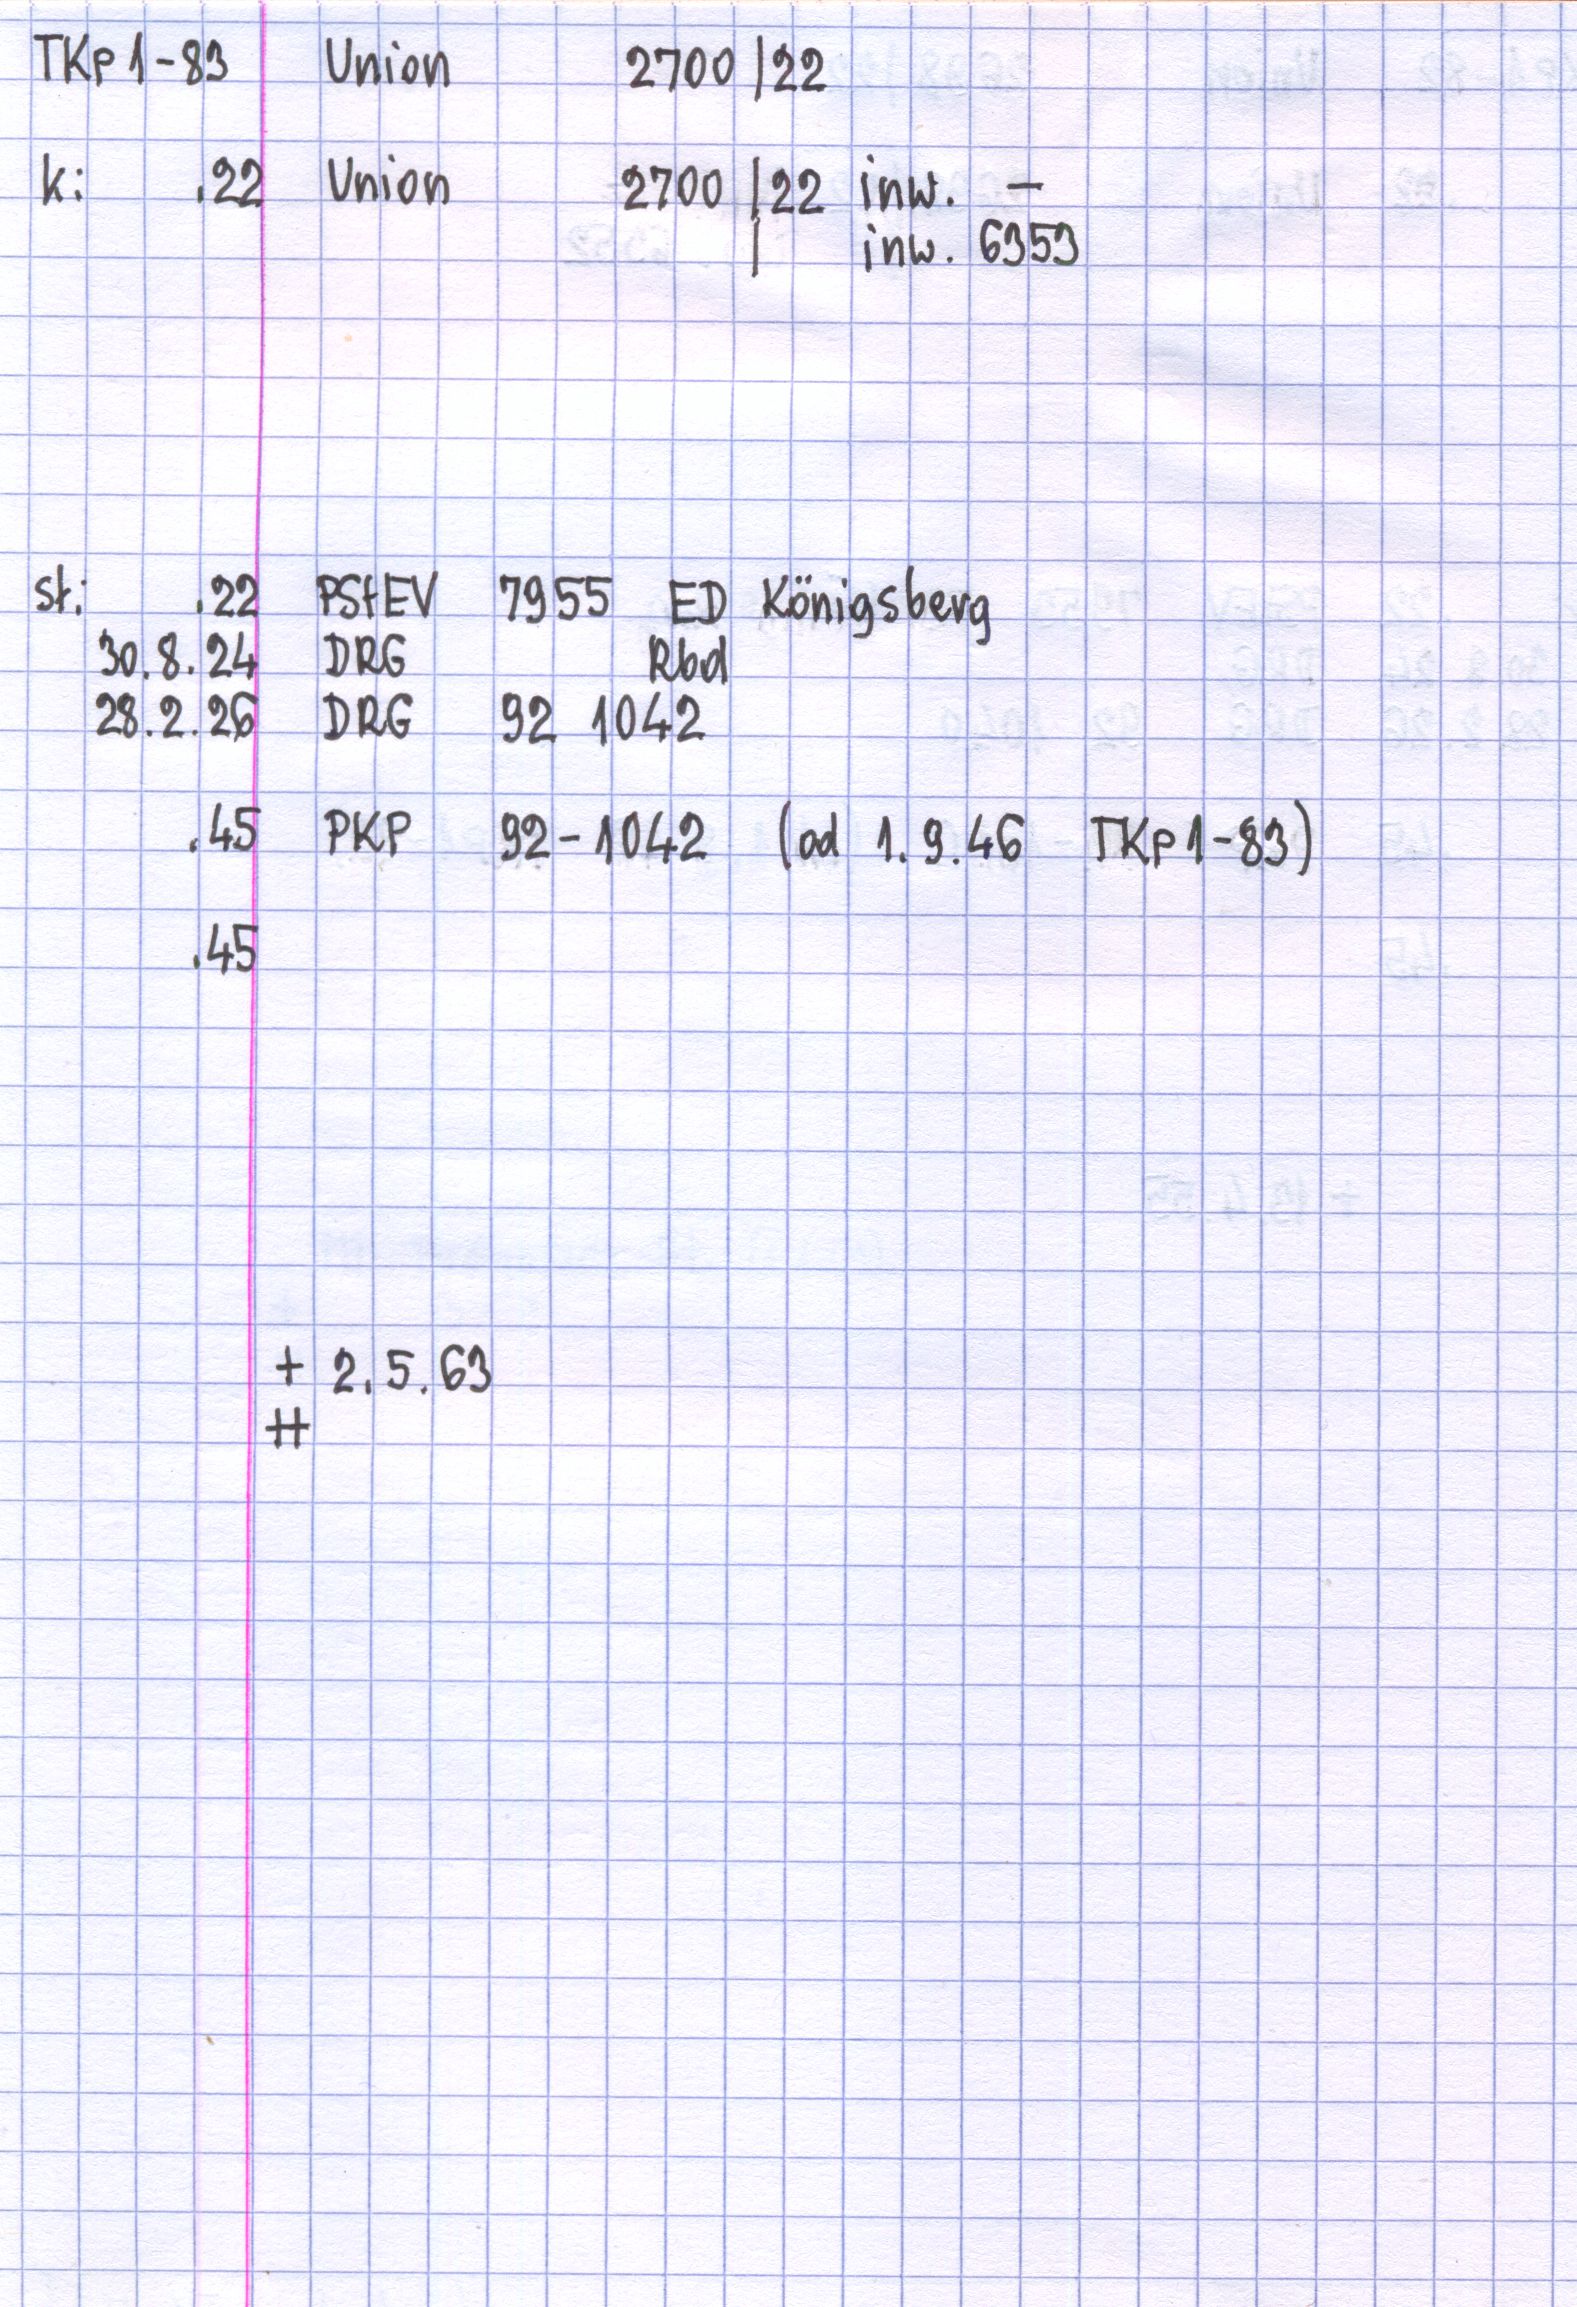 TKp1-83 Union 2700/22
k: .22 Union 2700/22 inw. -
| inw. 6353
st: .22 PStEV 7955 ED Königsberg
30.8.24 DRG Rbd
28.2.26 DRG 92 1042
.45 PKP 92-1042 (od 1.9.46 TKp1-83)
.45
+ 2.5.63
#